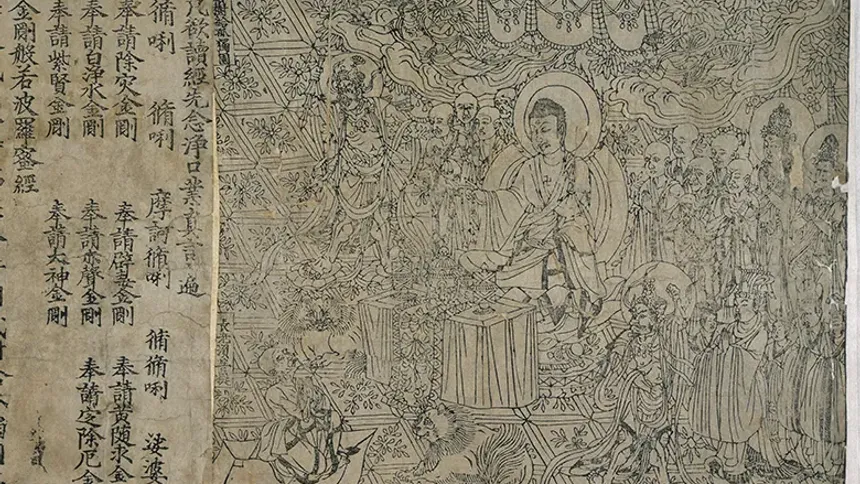 樹給孤獨園
長老須菩提
凡欲讀經先念淨口業真言一遍
脩唎 脩唎 摩訶脩唎 脩脩唎 娑婆
奉請除灾金剛 奉請辟毒金剛 奉請黃隨求金
奉請白淨水金剛 奉請赤聲金剛 奉請定除厄金
奉請紫賢金剛 奉請大神金剛
金剛般若波羅蜜經